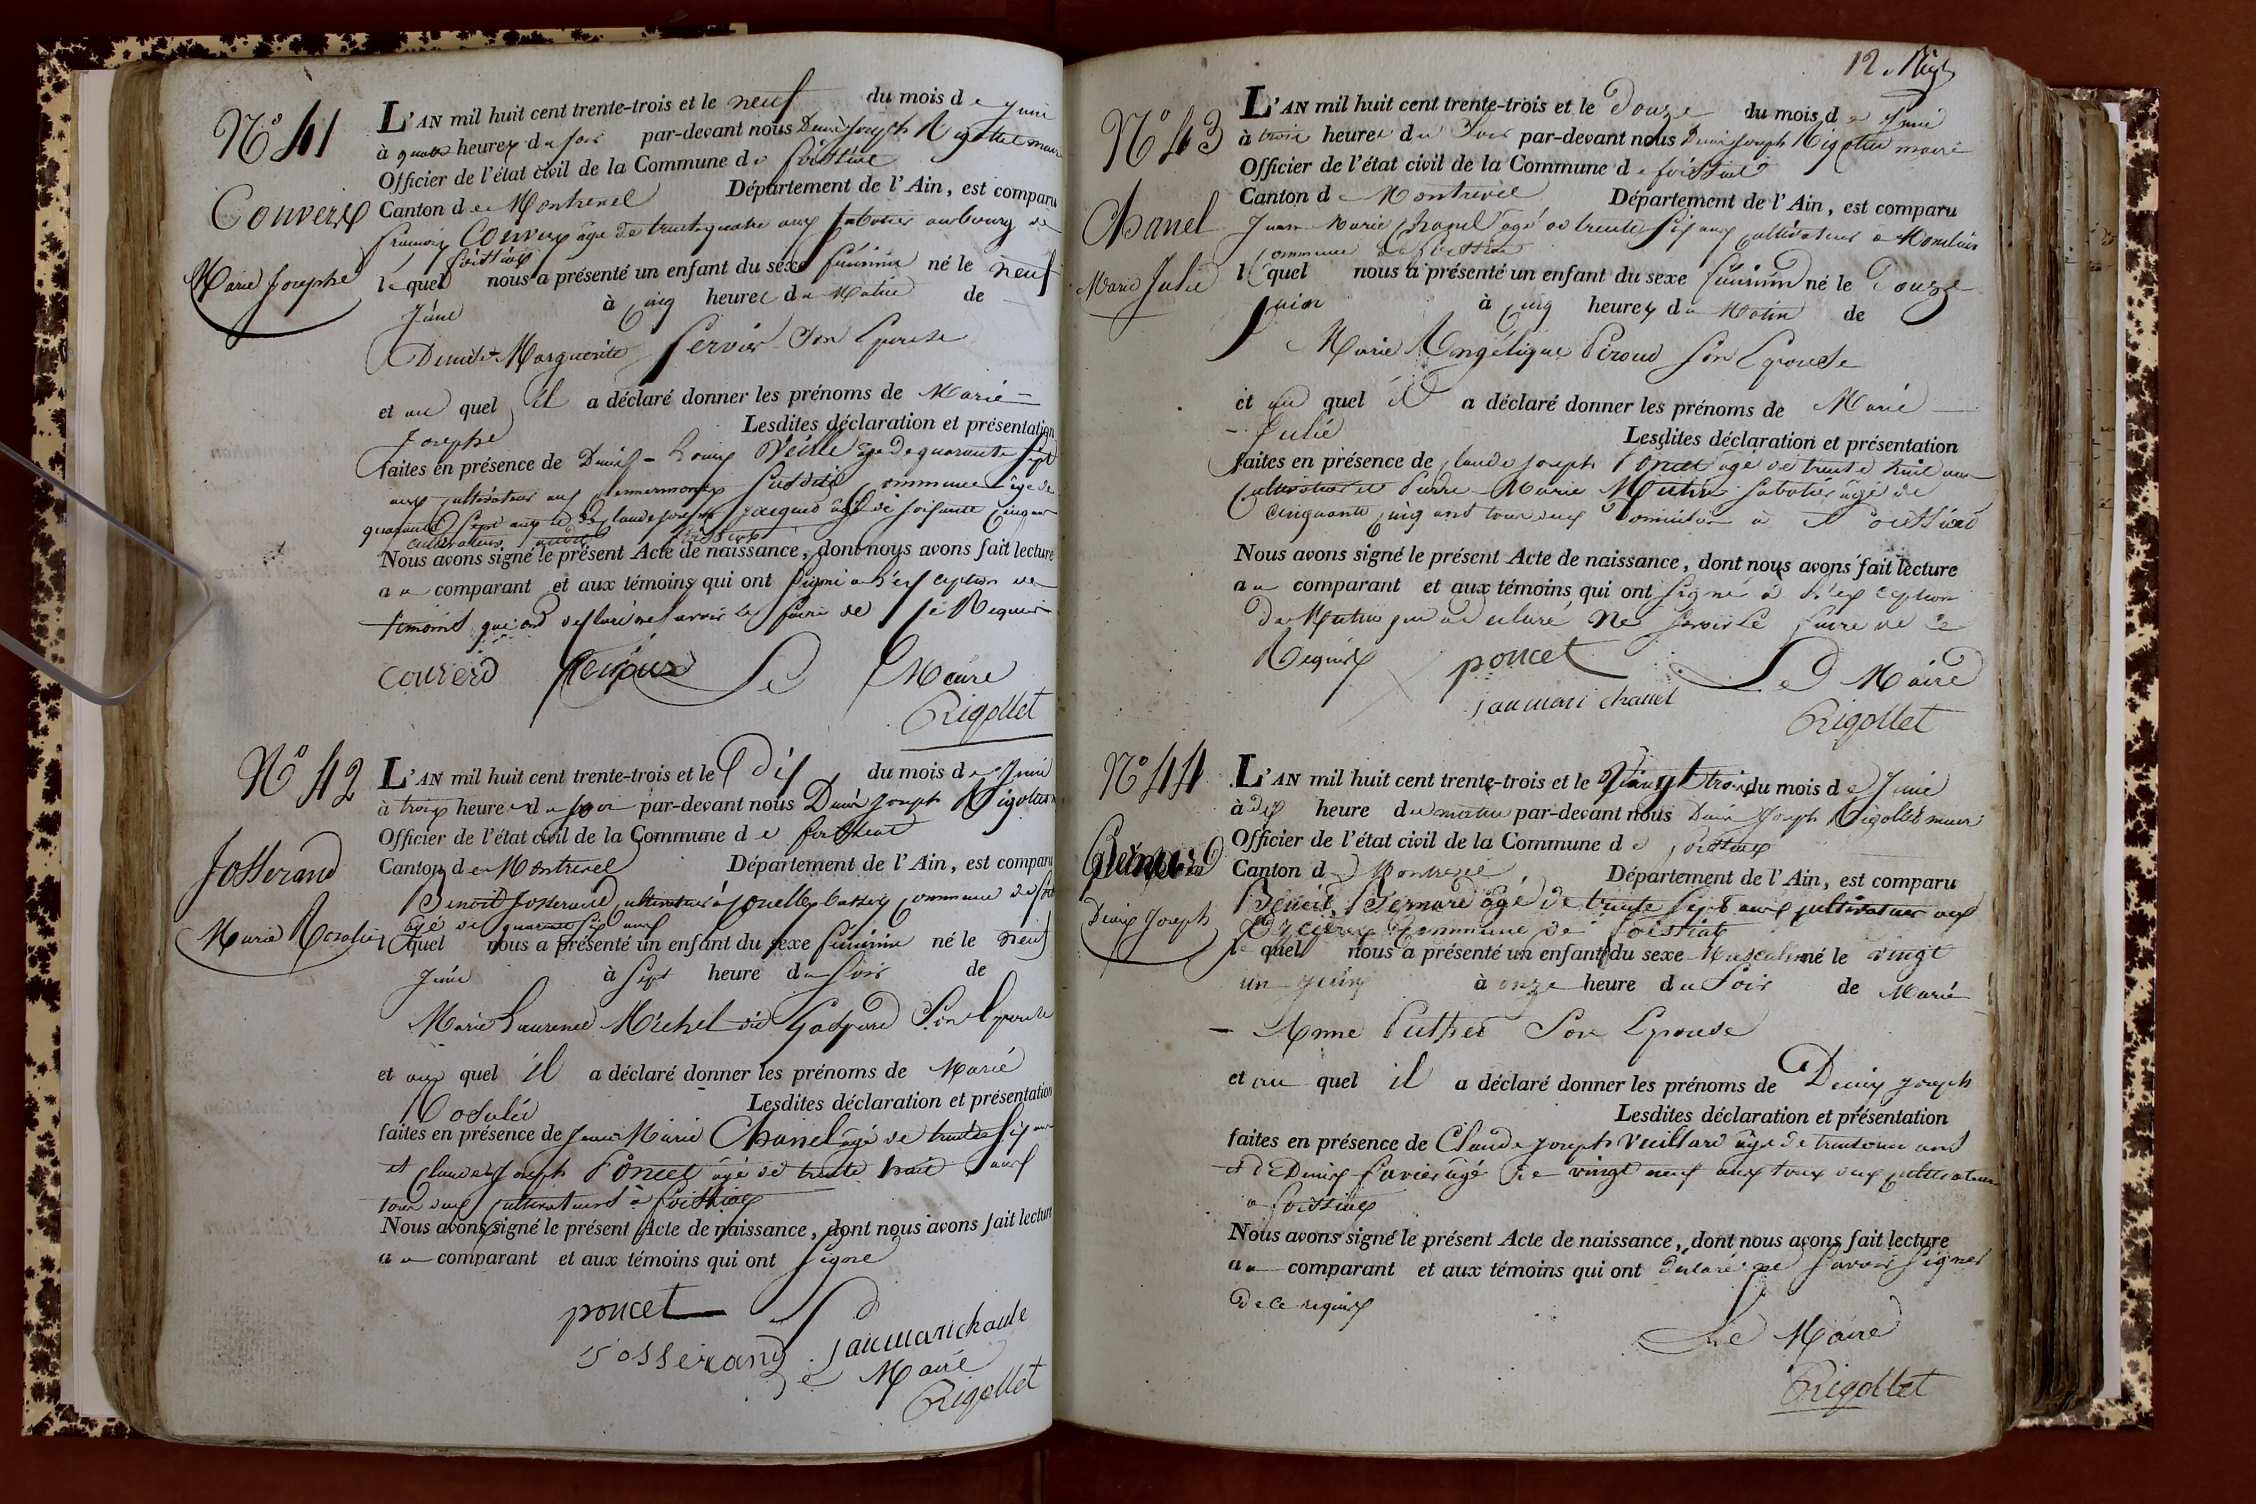 N° 41
Convers
Marie Josephe
L'AN mil huit cent trente-trois et le neuf du mois de juin
à quatre heures du soir par-devant nous Denis Joseph Rigollet maire
Officier de l'état civil de la Commune de foissiat
Canton de Montrevel Département de l'Ain, est comparu
françois Convers âgé de trente quatre ans sabotier au bourg de
foissiat
lequel nous a présenté un enfant du sexe féminin né le neuf
juin à cinq heures du Matin de
Denise Marguerite Servier son Epouse
et au quel il a déclaré donner les prénoms de Marie
Josephe Lesdites déclaration et présentation
faites en présence de Denis Louis Veille âgé de quarante sept
ans cultivateur susdite commune âgé de
quarante sept ans et de claude joseph jacquet âgé de soixante cinq ans
cultivateurs foissiat
Nous avons signé le présent Acte de naissance, dont nous avons fait lecture
au comparant et aux témoins qui ont signé à l'exception de
témoins qui ont déclaré ne savoir le faire de ce Requis
Le Maire
Rigollet
N° 42
Josserand
Marie Rosalie
L'AN mil huit cent trente-trois et le dix du mois de Juin
à trois heures du soir par-devant nous Denis Joseph Rigollet
Officier de l'état civil de la Commune de foissiat
Canton de Montrevel Département de l'Ain, est comparu
Benoit Josserand cultivateur à commune de foissiat
âgé de quarante six ans
lequel nous a présenté un enfant du sexe féminin né le neuf
Juin à sept heure du soir de
Marie Laurence Michel dit Gaspard Son Epouse
et au quel il a déclaré donner les prénoms de Marie
Rosalie Lesdites déclaration et présentation
faites en présence de Jean Marie Chanel âgé de trente six ans
et claude Joseph Poncet âgé de trente huit ans
tous deux cultivateurs à foissiat
Nous avons signé le présent Acte de naissance, dont nous avons fait lecture
au comparant et aux témoins qui ont signé
poncet Le
Josserand janmari chanle
Maire
Rigollet
12
N° 43
Chanel
Marie Julie
L'AN mil huit cent trente-trois et le Douze du mois de Juin
à trois heures du Soir par-devant nous Denis Joseph Rigollet maire
Officier de l'état civil de la Commune de foissiat
Canton de Montrevel Département de l'Ain, est comparu
Jean Marie Chanel âgé de trente six ans cultivateur à
commune de foissiat
lequel nous a présenté un enfant du sexe féminin né le Douze
juin à cinq heures du Matin de
Marie Angélique Peroud Son Epouse
et au quel il a déclaré donner les prénoms de Marie
Julie Lesdites déclaration et présentation
faites en présence de claude joseph Poncet âgé de trente huit ans
cultivateur et Pierre Marie Mutin sabotier âgé de
cinquante cinq ans tous deux Domiciliés à foissiat
Nous avons signé le présent Acte de naissance, dont nous avons fait lecture
au comparant et aux témoins qui ont signé à l'exception
de Mutin qui a déclaré Ne Savoir le faire de ce
Requis poncet Le Maire
janmari chanel
Rigollet
N° 44
Bernard
Denis Joseph
L'AN mil huit cent trente-trois et le Vingt trois du mois de Juin
à dix heure du matin par-devant nous Denis Joseph Rigollet maire
Officier de l'état civil de la Commune de foissiat
Canton de Montrevel Département de l'Ain, est comparu
Benoit Bernard âgé de trente sept ans cultivateur aux
commune de foissiat
le quel nous a présenté un enfant du sexe Masculin né le vingt
un juin à onze heure du Soir de Marie
Anne Puthet Son Epouse
et au quel il a déclaré donner les prénoms de Denis Joseph
Lesdites déclaration et présentation
faites en présence de Claude Joseph Vuillard âgé de trente un ans
et de Denis favier âgé de vingt neuf ans tous deux cultivateurs
à foissiat
Nous avons signé le présent Acte de naissance, dont nous avons fait lecture
au comparant et aux témoins qui ont déclaré ne savoir signer
de ce requis
Le Maire
Rigollet